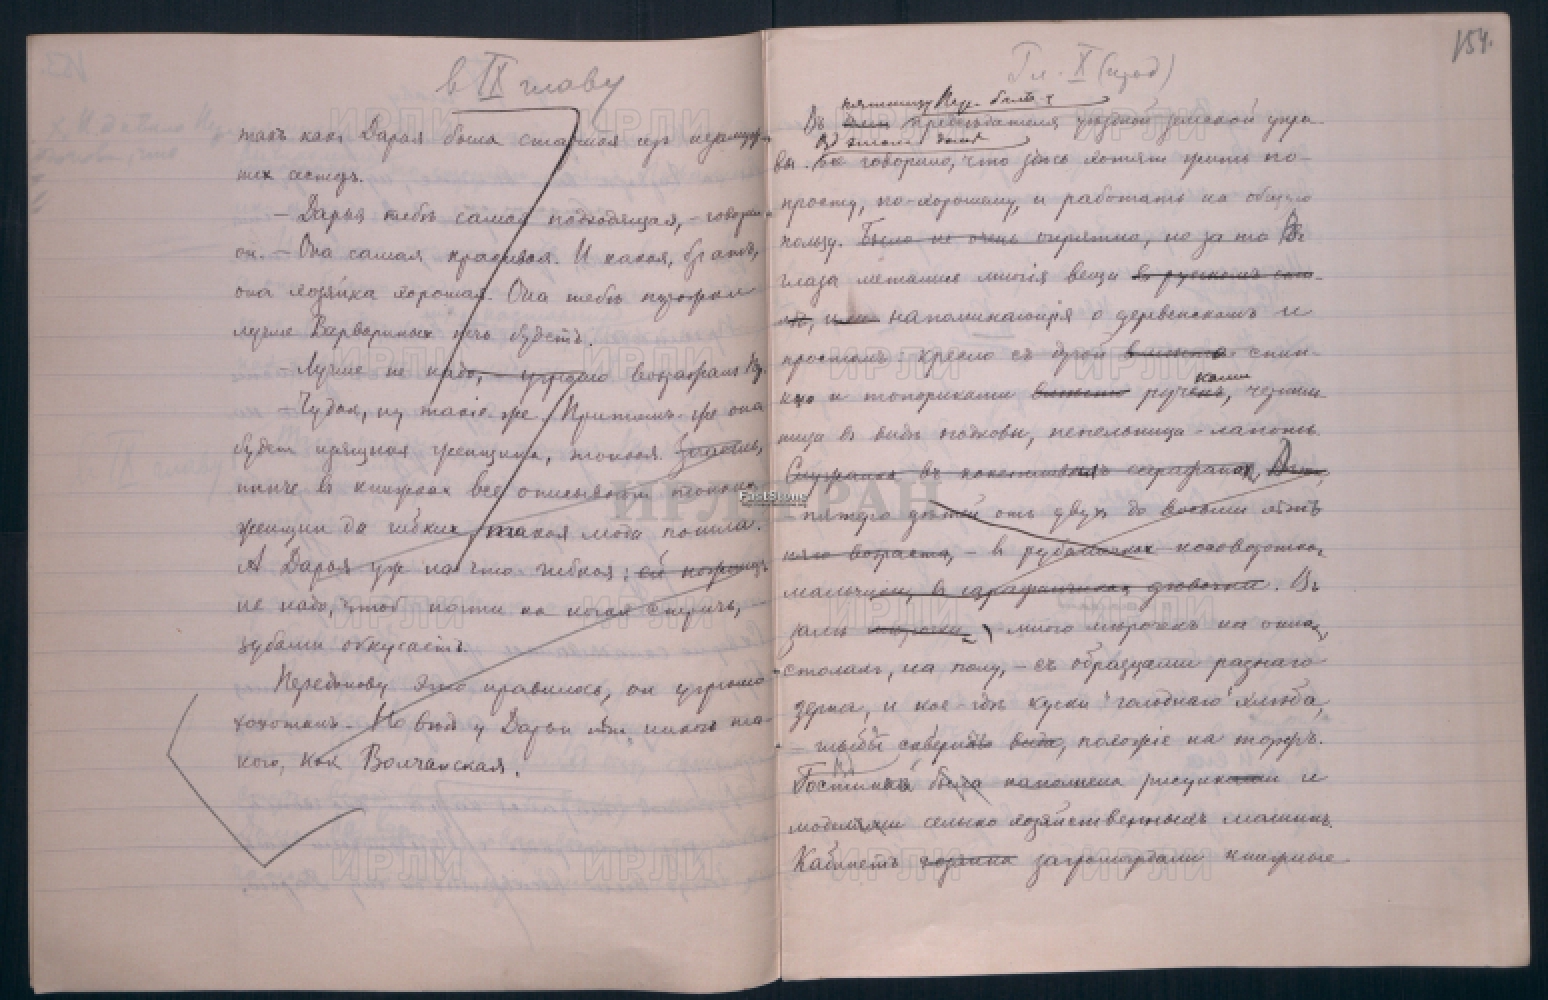 в IX главу
такъ какъ Дарья была старшая изъ незамуж-
нихъ сестеръ.
— Дарья тебѣ самая подходящая, — говорил
он. — Она самая красивая. И какая, братъ,
она хозяйка хорошая. Она тебѣ пузожрал
лучше Варвариных печь будетъ.
— Лучше не надо, — угрюмо возразил
— Чудак, ну такіе же. Притомъ-же она
будет изящная женщина, тонкая.
нынче в книжках все описывают тонких
женщин да гибких, такая мода пошла.
А Дарья уж на что гибкая: ей ножниц
не надо, чтоб ногти на ногах стричь, —
зубами обкусаетъ.
Передонову это нравилось, он угрюмо
хохоталъ. Но вид у Дарьи
кого, как Волчанская.
154.
Гл. X (
пятницу Пер. был у
Въ предсѣдателя уѣздной земской упра-
В этом домѣ
вы. говорило, что здѣсь хотят жить по-
просту, по-хорошему, и работать на общую
пользу. Было не очень опрятно, но за то В
глаза метались многія вещи в русском сти-
лѣ, напоминающія о деревенскомъ и
простомъ: кресло съ дугой вмѣсто спин-
ками
кою и топориками вмѣсто ручекъ, черниль
ница в видѣ подковы, пепельница-лапоть.
Служанка въ кокетливомъ сарафанѣ,
пятеро дѣтей отъ двухъ до восьми лѣтъ
няго возраста, — в рубашечках косоворотках
мальчики, в сарафанчиках дѣвочки. Въ
залѣ много мѣрочекъ на окнах,
столахъ, на полу, — съ образцами разнаго
зерна, и кое-гдѣ куски "голоднаго" хлѣба,
— глыбы вида, похожіе на торфъ.
Гостиная была наполнена рисунками и
моделями сельско хозяйственныхъ машинъ.
Кабинетъ хозяина загромождали книжные
ИРЛИ
ИРЛИ РАН
FastStone